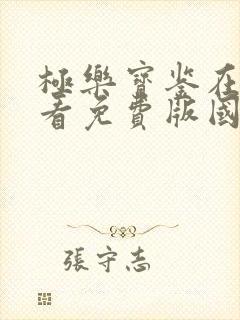 極樂寶鉴在
看免費版國
張守志